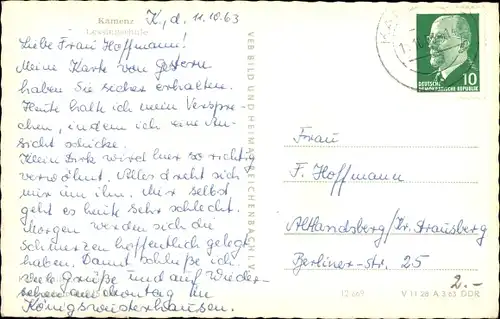 Kamenz
Lessingschule
K, d. 11.10.63
Liebe Frau Hoffmann!
Meine Karte von gestern
haben Sie sicher erhalten.
Heute halte ich mein Verspre-
chen, indem ich eine An-
sicht schicke.
Klein Dirk wird hier so richtig
verwöhnt. Alles dreht sich
nur um ihn. Mir selbst
geht es heute sehr schlecht.
Morgen werden sich die
Schmerzen hoffentlich gelegt
haben. Damit schließe ich
viele Grüße und auf Wieder-
sehen am Montag in
Königswusterhausen.
VEB BILD UND HEIMAT REICHENBACH I. V.
10
DEUTSCHE
DEMOKRATISCHE REPUBLIK
Frau
F. Hoffmann
Altlandsberg/Kr. Strausberg
Berliner-Str. 25
2.-
V 11 28 A 3 63 DDR